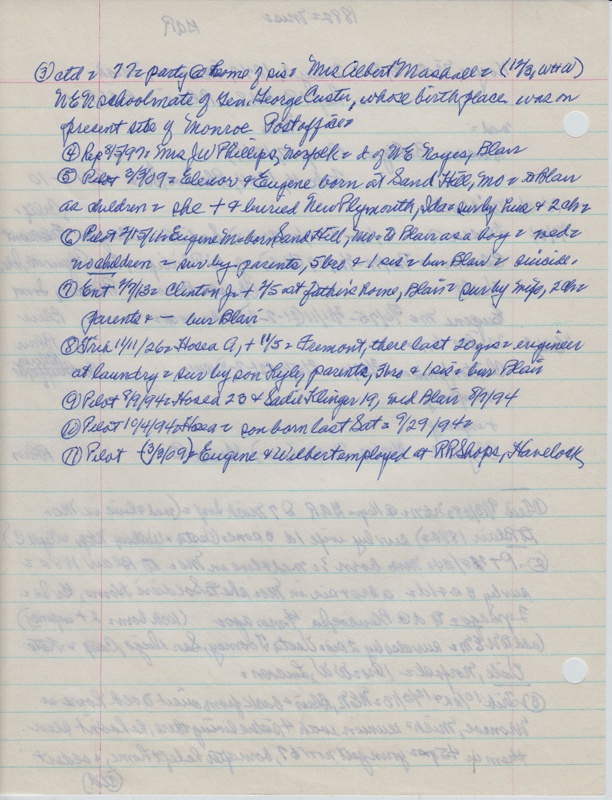 ③ ctd = 77= party @ home of sis= Mrs Albert Marshall= (12/3, WHW)
N E N schoolmate of Gen. George Custer, whose birthplace was on
present site of Monroe Postoffice=
④ Rep 3/5/97= Mrs JW Phillips, Norfolk = d of WE Noyes, Blair
⑤ Pilot 3/3/09= Elenor & Eugene born at Sand Hill, Mo= to Blair
as children = she + & buried New Plymouth, Ida= sur by hus & 2 ch=
⑥ Pilot Eugene M= born Sand Hill, Mo= to Blair as a boy = wed=
no children = sur by parents, 5 bro & 1 sis= bur Blair= suicide=
⑦ Ent 2/7/13= Clinton Jr + 2/5 at fathers home, Blair= sur by wife, 2 ch=
parents & — bur Blair
⑧ Trib 11/11/26= Hosea A, + 11/5= Fremont, there last 20 yrs= engineer
at laundry= sur by son Kyle, parents, 3 bro & 1 sis= bur Blair
⑨ Pilot 8/9/94= Hosea 23 & Sadie Klinger 19, md Blair 8/7/94
⑩ Pilot 10/4/94= Hosea= son born last Sat= 9/29/94=
⑪ Pilot (3/3/09)= Eugene & Wilbert employed at RR Shops, Havelock